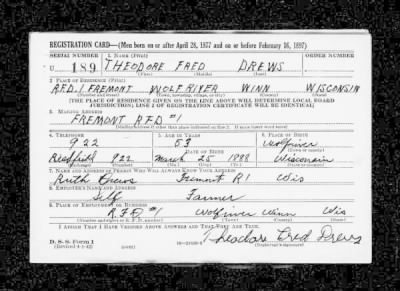 REGISTRATION CARD—(Men born on or after April 28, 1877 and on or before February 16, 1897)
SERIAL NUMBER 1. NAME (Print) ORDER NUMBER
U 189 THEODORE FRED DREWS
(First) (Middle) (Last)
2. PLACE OF RESIDENCE (Print)
R.F.D. 1 FREMONT WOLF RIVER WINN WISCONSIN
(Number and street) (Town, township, village, or city) (County) (State)
[THE PLACE OF RESIDENCE GIVEN ON THE LINE ABOVE WILL DETERMINE LOCAL BOARD
JURISDICTION; LINE 2 OF REGISTRATION CERTIFICATE WILL BE IDENTICAL]
3. MAILING ADDRESS
FREMONT RFD #1
(Mailing address if other than place indicated on line 2. If same insert word same)
4. TELEPHONE 5. AGE IN YEARS 6. PLACE OF BIRTH
922 53 Wolfriver
DATE OF BIRTH (Town or county)
922 March 25 1888 Wisconsin
(Exchange) (Number) (Mo.) (Day) (Yr.) (State or country)
7. NAME AND ADDRESS OF PERSON WHO WILL ALWAYS KNOW YOUR ADDRESS
Fremont R1 Wis
8. EMPLOYER'S NAME AND ADDRESS
Self Farmer
9. PLACE OF EMPLOYMENT OR BUSINESS
R.F.D. #1 Wolfriver Winn Wis
(Number and street or R. F. D. number) (Town) (County) (State)
I AFFIRM THAT I HAVE VERIFIED ABOVE ANSWERS AND THAT THEY ARE TRUE.
D. S. S. Form 1 Theodore Fred Drews
(Revised 4-1-42) (over) (Registrant's signature)